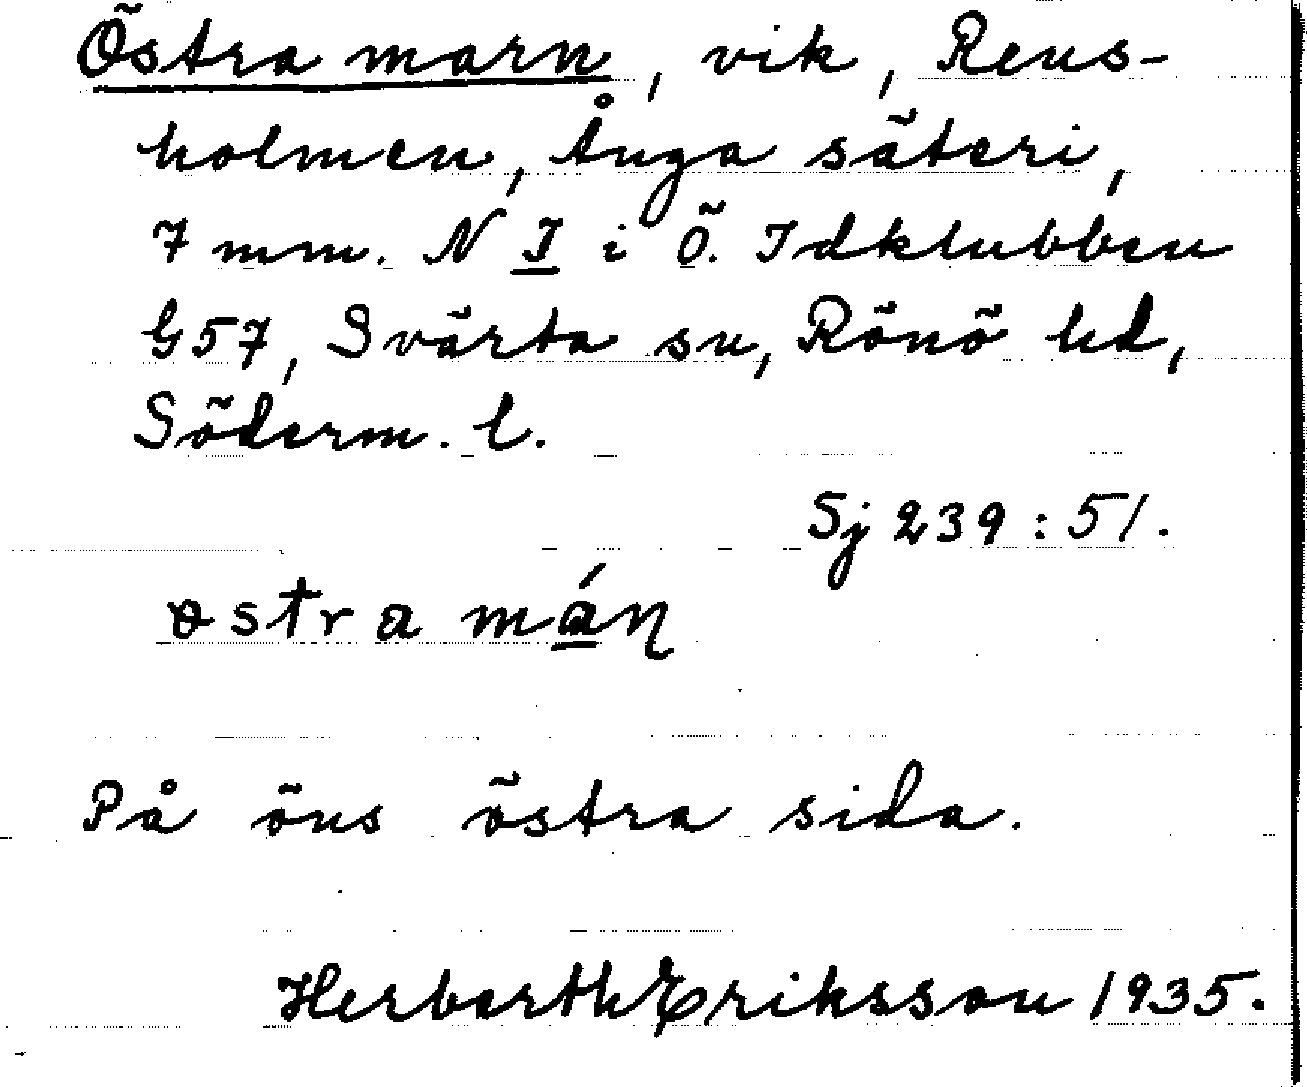 Östra marn, vik, Rens-
holmen, Ånga säteri,
7 mm. N I i Ö. Idklubben
G57, Svärta sn, Rönö hd,
Söderm. l.
Sj 239:51.
östra mán
På öns östra sida.
Herbarth Eriksson 1935.